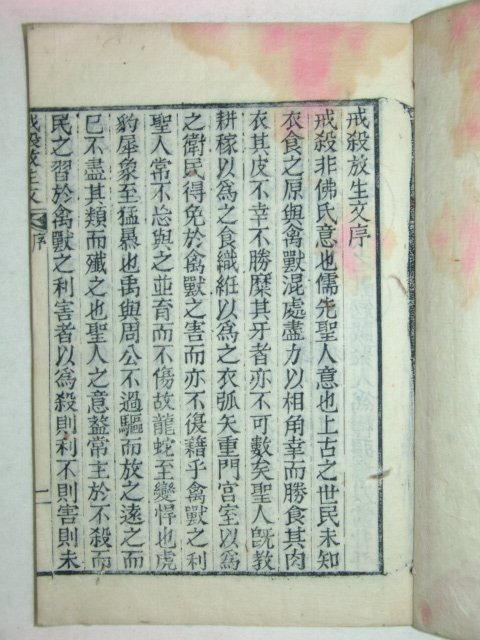 戒殺放生文序
戒殺非佛氏意也儒先聖人意也上古之世民未知
衣食之原與禽獸混處盡力以相角幸而勝食其肉
衣其皮不幸不勝糜其牙者亦不可數矣聖人旣教
耕稼以爲之食織絍以爲之衣弧矢重門宫室以爲
之衛民得免於禽獸之害而亦不復藉乎禽獸之利
聖人常不忘與之並育而不傷故龍蛇至變悍也虎
豹犀象至猛暴也禹與周公不過驅而放之遠之而
已不盡其類而殲之也聖人之意葢常主於不殺而
民之習於禽獸之利害者以爲殺則利不則害則未
戒殺放生文 序 一